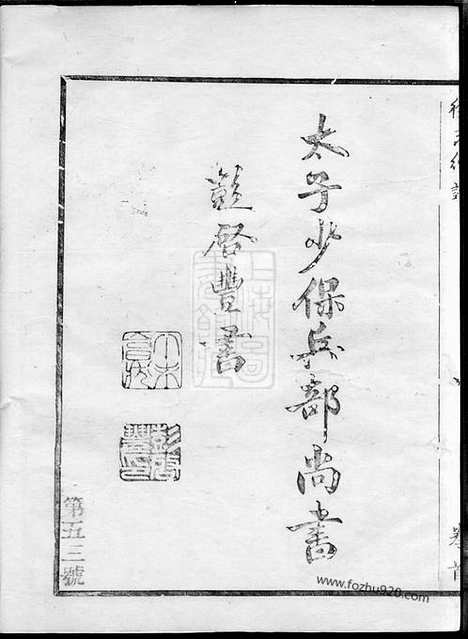 太子少保兵部尚書
彭啓豐書
第五三號
www.fozhu920.com